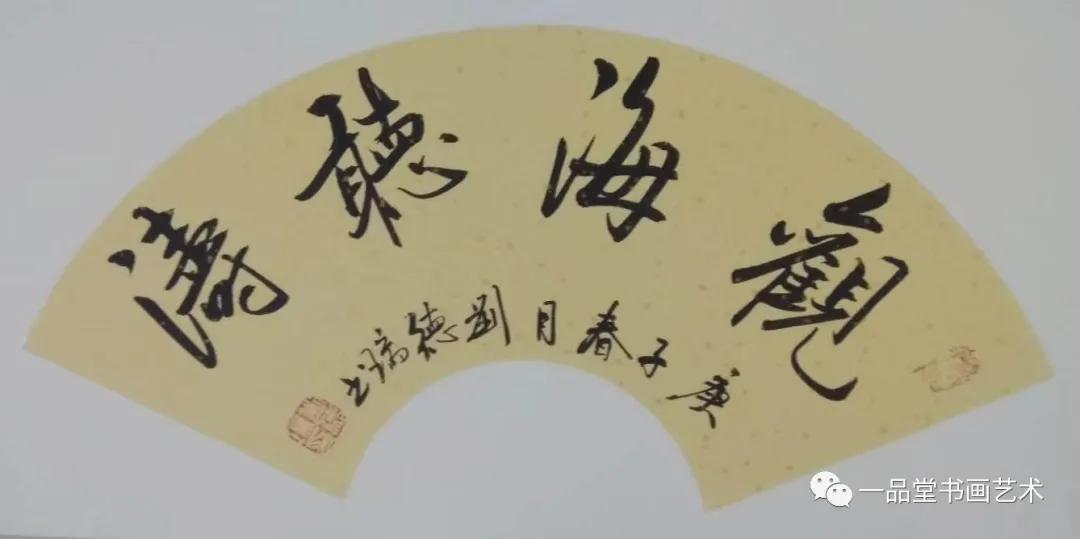 觀海聽濤
庚子春月劉德瑞书
一品堂书画艺术